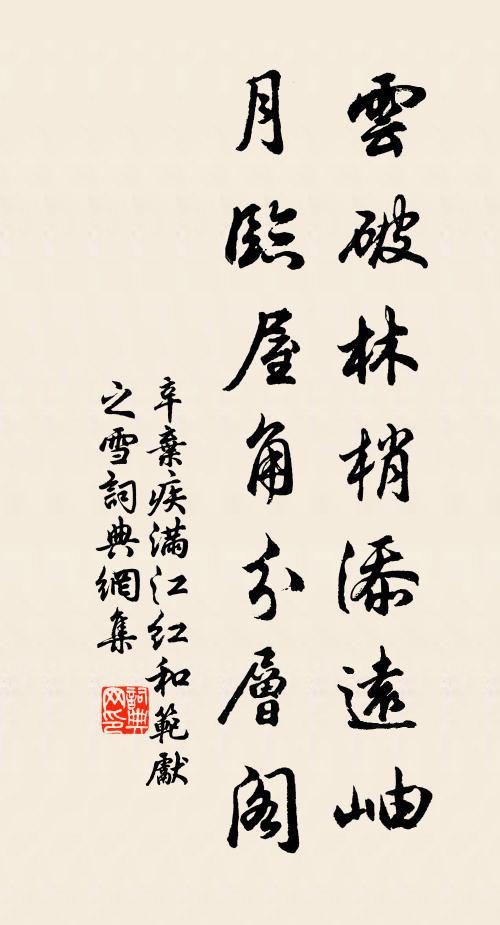 雲破林梢添遠岫
月臨屋角分層閣
辛棄疾滿江紅和範獻
之雪詞典網集
詞典網印